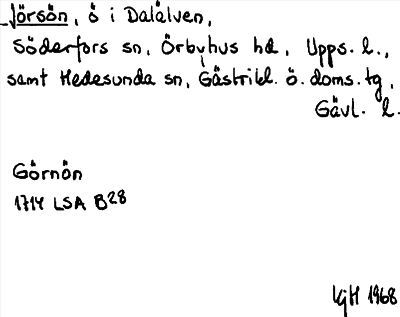 Jörsön, ö i Dalälven,
Söderfors sn, Örbyhus hd, Upps. l.,
samt Hedesunda sn, Gästrikl. ö. doms. tg,
Gävl. l.
Görnön
1714 LSA B28
LgH 1968